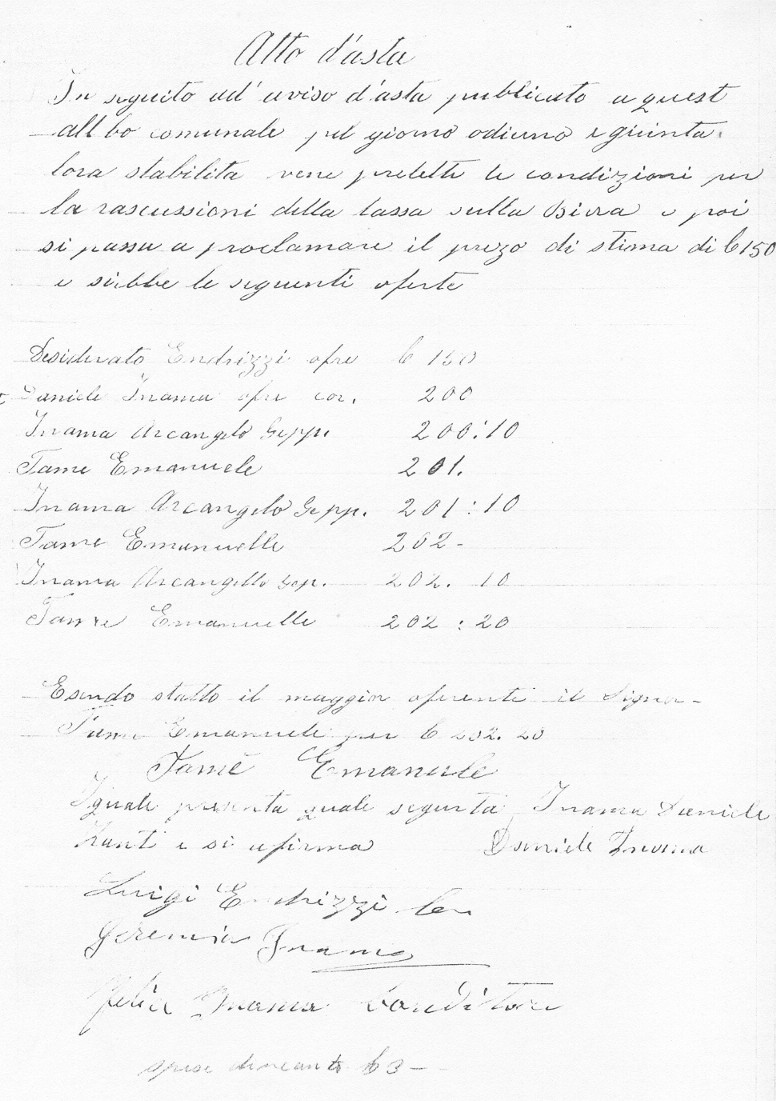 Atto d'asta
In seguito ad' aviso d'asta publicato a quest
allbo comunale pel giorno odierno e giunta
lora stabilita vene prelette le condizioni per
la rascussioni della tassa sulla Birra e poi
si passa a proclamare il prezo di stima di C 150
e sirbbe le seguenti oferte
Desiderato Endrizzi ofre C 150
Daniele Inama ofre cor. 200
Inama Arcangelo Gepp. 200:10
Tame Emanuele 201.
Inama Arcangelo Gepp. 201:10
Tame Emanuelle 202-
Inama Arcangello Gep. 202. 10
Tame Emanuelle 202:20
Esendo statto il maggior oferenti il Signa-
Tame Emanuele per C 202.20
Tamè Emanuele
Iquale presenta quale segurta Inama Daniele
Zanti e si afirma Daniele Inama
Luigi Endrizzi
Geremia Inama
Felice Inama Banditore
spese dincanto C 3-